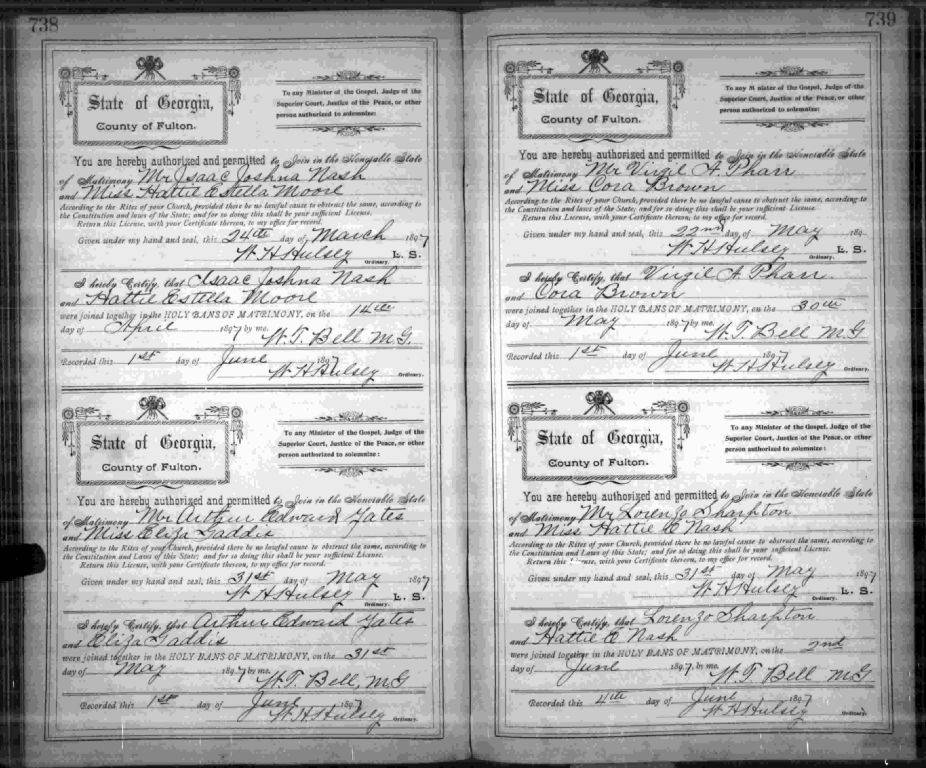 738
State of Georgia,
County of Fulton.
To any Minister of the Gospel, Judge of the
Superior Court, Justice of the Peace, or other
person authorized to solemnize:
You are hereby authorized and permitted to Join in the Honorable State
of Matrimony Mr Isaac Joshna Nash
and Miss Hattie Estella Moore
According to the Rites of your Church, provided there be no lawful cause to obstruct the same, according to
the Constitution and laws of this State; and for so doing this shall be your sufficient License.
Return this License, with your Certificate thereon, to my office for record.
Given under my hand and seal, this 24th day of March 1897
W H Hulsey L. S.
Ordinary.
I hereby Certify, that Isaac Joshna Nash
and Hattie Estella Moore
were joined together in the HOLY BANS OF MATRIMONY, on the 14th
day of April 1897 by me.
W. T. Bell M.G.
Recorded this 1st day of June 1897
W H Hulsey Ordinary.
State of Georgia,
County of Fulton.
To any Minister of the Gospel, Judge of the
Superior Court, Justice of the Peace, or other
person authorized to solemnize:
You are hereby authorized and permitted to Join in the Honorable State
of Matrimony Mr Arthur Edward Yates
and Miss Eliza Gaddis
According to the Rites of your Church, provided there be no lawful cause to obstruct the same, according to
the Constitution and Laws of this State; and for so doing this shall be your sufficient License.
Return this License, with your Certificate thereon, to my office for record.
Given under my hand and seal, this 31st day of May 1897
W H Hulsey L. S.
Ordinary.
I hereby Certify, that Arthur Edward Yates
and Eliza Gaddis
were joined together in the HOLY BANS OF MATRIMONY, on the 31st
day of May 1897 by me.
W. T. Bell, M.G
Recorded this 1st day of June 1897
W H Hulsey Ordinary.
739
State of Georgia,
County of Fulton.
To any Minister of the Gospel, Judge of the
Superior Court, Justice of the Peace, or other
person authorized to solemnize:
You are hereby authorized and permitted to Join in the Honorable State
of Matrimony Mr Virgil A. Pharr
and Miss Cora Brown
According to the Rites of your Church, provided there be no lawful cause to obstruct the same, according to
the Constitution and laws of this State; and for so doing this shall be your sufficient License.
Return this License, with your Certificate thereon, to my office for record.
Given under my hand and seal, this 22nd day of May 189
W H Hulsey L. S.
Ordinary.
I hereby Certify, that Virgil A. Pharr
and Cora Brown
were joined together in the HOLY BANS OF MATRIMONY, on the 30th
day of May 1897 by me.
W. T. Bell M G
Recorded this 1st day of June 1897
W H Hulsey Ordinary.
State of Georgia,
County of Fulton.
To any Minister of the Gospel, Judge of the
Superior Court, Justice of the Peace, or other
person authorized to solemnize:
You are hereby authorized and permitted to Join in the Honorable State
of Matrimony Mr Lorenzo Sharpton
and Miss Hattie E Nash
According to the Rites of your Church, provided there be no lawful cause to obstruct the same, according to
the Constitution and Laws of this State; and for so doing this shall be your sufficient License.
Return this License, with your Certificate thereon, to my office for record.
Given under my hand and seal, this 31st day of May 1897
W H Hulsey L. S.
Ordinary.
I hereby Certify, that Lorenzo Sharpton
and Hattie E Nash
were joined together in the HOLY BANS OF MATRIMONY, on the 2nd
day of June 1897 by me.
W. T. Bell M G
Recorded this 4th day of June 1897
W H Hulsey Ordinary.